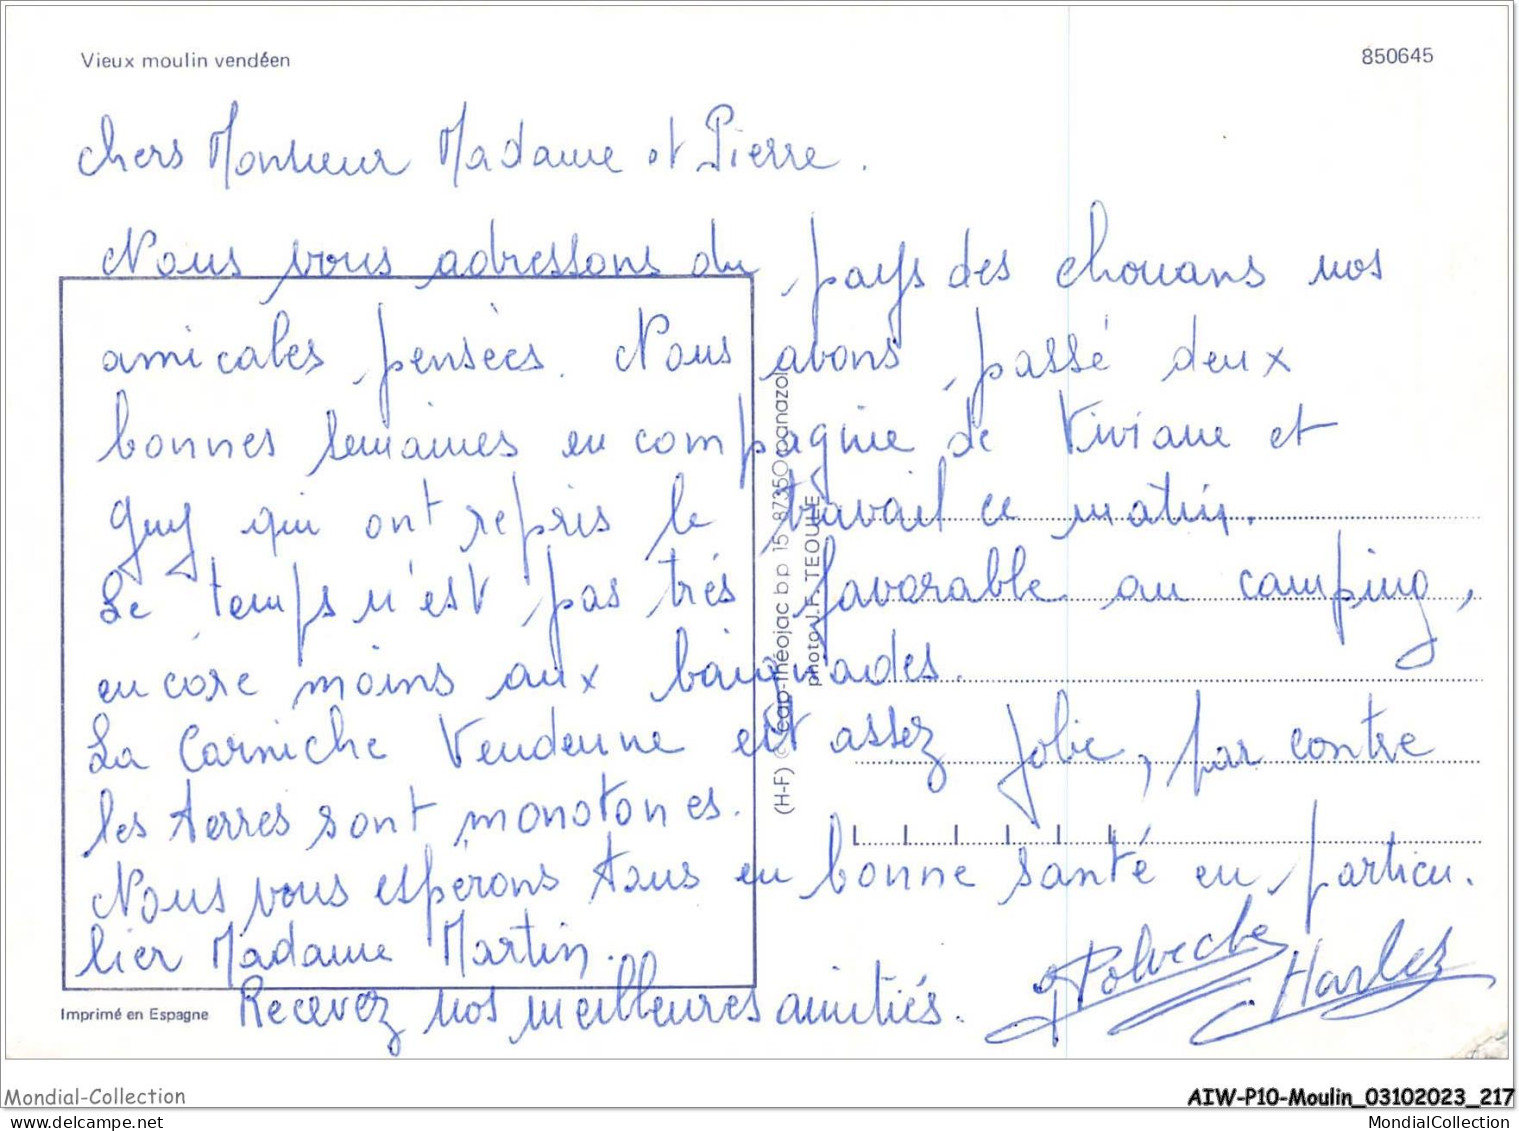 Vieux moulin vendéen
850645
Chers Monsieur Madame et Pierre.
Nous vous adressons du pays des chouans nos
amicales pensées. Nous avons passé deux
bonnes semaines en compagnie de Viviane et
Guy qui ont repris le travail ce matin.
Le temps n'est pas très favorable au camping,
encore moins aux baignades.
La Corniche Vendenne est assez jolie, par contre
les terres sont monotones.
Nous vous espérons tous en bonne santé en particu.
lier Madame Martin.
Recevez nos meilleures amitiés.
(H-F) © cap-théojac b.p 15 87350 panazol
photo J.F. TEOULLE
Imprimé en Espagne
Mondial-Collection
AIW-P10-Moulin_03102023_217
MondialCollection